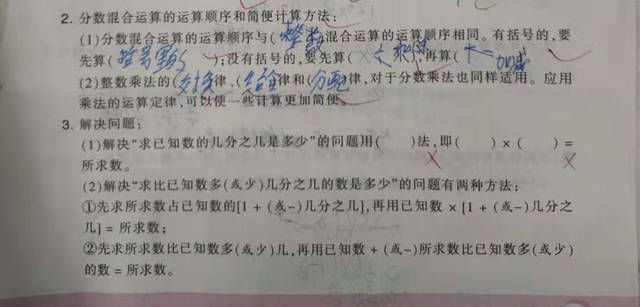 2. 分数混合运算的运算顺序和简便计算方法:
(1)分数混合运算的运算顺序与(整数)混合运算的运算顺序相同。有括号的,要
先算(括号里的);没有括号的,要先算( 和除 再算( 减
(2)整数乘法的(交换)律、(结合)律和(分配)律,对于分数乘法也同样适用。应用
乘法的运算定律,可以使一些计算更加简便。
3. 解决问题:
(1)解决“求已知数的几分之几是多少”的问题用( )法,即( )×( )=
所求数。
(2)解决“求比已知数多(或少)几分之几的数是多少”的问题有两种方法:
①先求所求数占已知数的[1+(或-)几分之几],再用已知数×[1+(或-)几分之
几]=所求数;
②先求所求数比已知数多(或少)几,再用已知数+(或-)所求数比已知数多(或少)
的数=所求数。